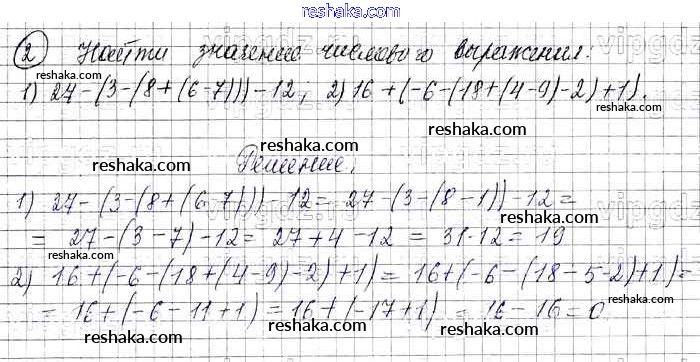 reshaka.com
2 Найти значение числового выражения:
1) 27-(3-(8+(6-7)))-12, 2) 16+(-6-(18+(4-9)-2)+1).
Решение.
1) 27-(3-(8+(6-7)))-12= 27-(3-(8-1))-12=
= 27-(3-7)-12= 27+4-12 = 31-12 = 19
2) 16+(-6-(18+(4-9)-2)+1)= 16+(-6-(18-5-2)+1)=
= 16+(-6-11+1)=16+(-17+1) = 16-16=0